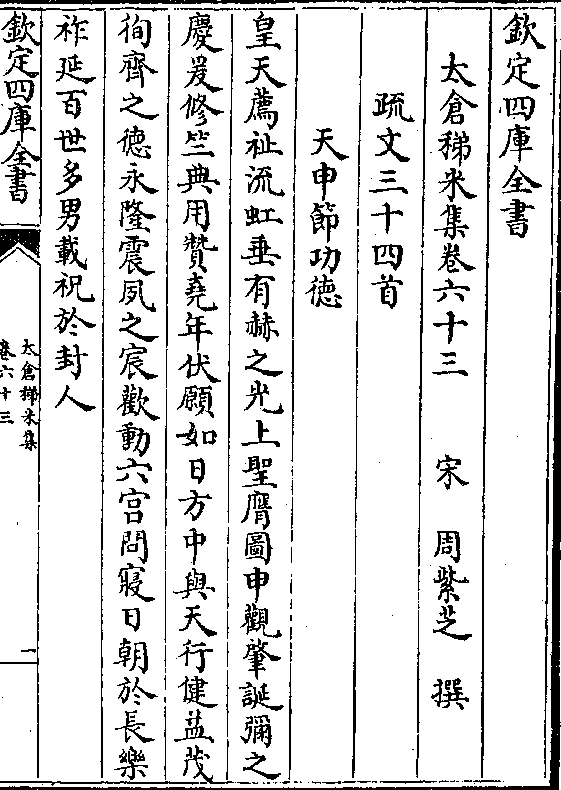 欽定四庫全書
太倉稊米集卷六十三　宋　周紫芝　撰
疏文三十四首
天申節功德
皇天薦祉流虹垂有赫之光上聖膺圖申觀肇誕彌之
慶爰修竺典用贊堯年伏願如日方中與天行健益茂
徇齊之德永隆震夙之宸歡動六宮問寢日朝於長樂
祚延百世多男載祝於封人
欽定四庫全書
太倉稊米集
卷六十三
一